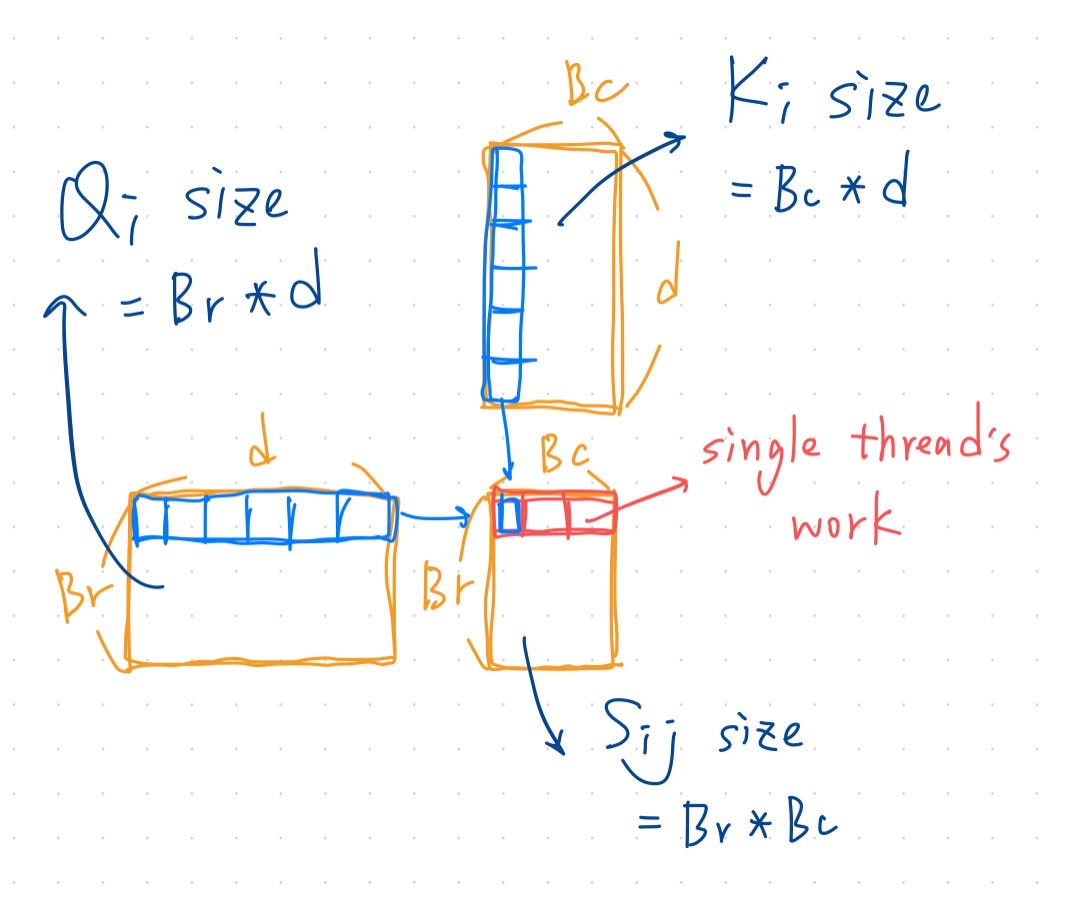 Bc
Ki size
= Bc * d
d
Qi size
= Br * d
d
Br
Bc
Br
single thread's
work
Sij size
= Br * Bc